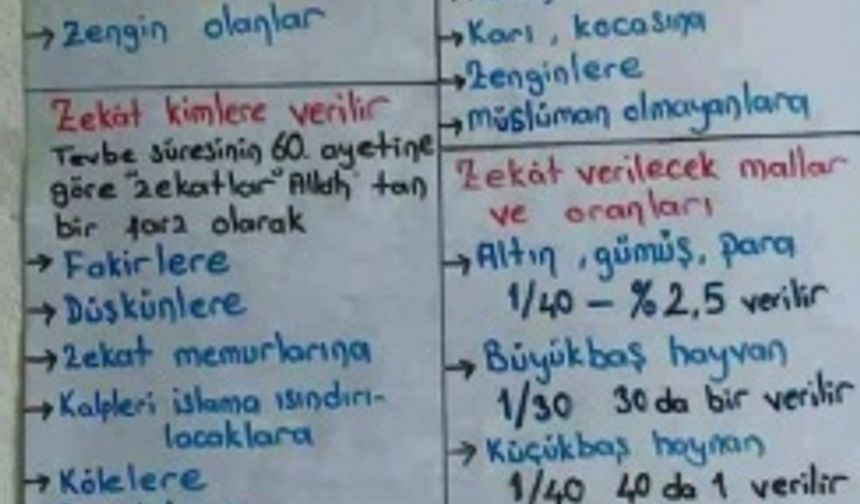 → Zengin olanlar
Zekât kimlere verilir
Tevbe sûresinin 60. ayetine
göre "zekatlar" Allah' tan
bir farz olarak
→ Fakirlere
→ Düşkünlere
→ Zekat memurlarına
→ Kalpleri islama ısındırı-
lacaklara
→ Kölelere
→ Karı, kocasına
→ Zenginlere
→ müslüman olmayanlara
Zekât verilecek mallar
ve oranları
→ Altın, gümüş, para
1/40 – %2,5 verilir
→ Büyükbaş hayvan
1/30 30 da bir verilir
→ Küçükbaş hayvan
1/40 40 da 1 verilir